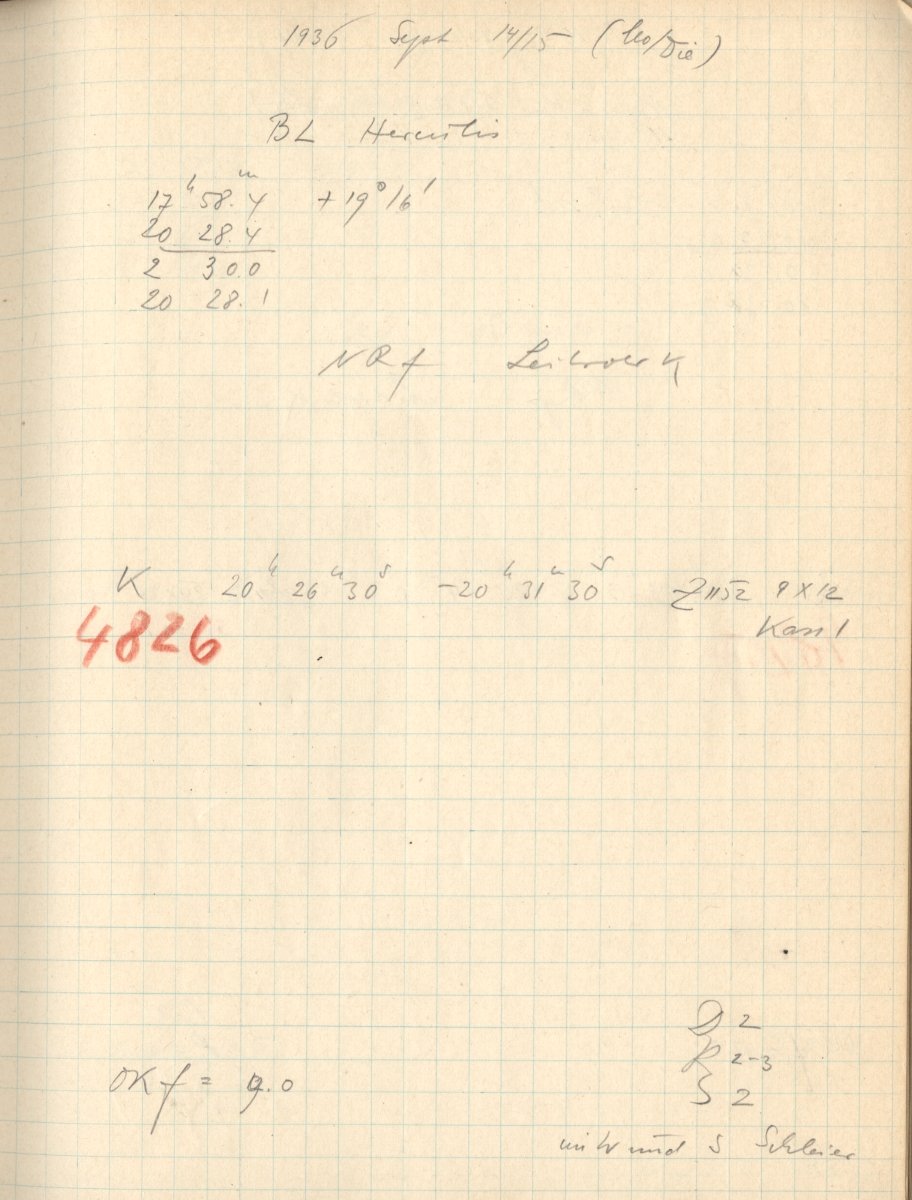 1936 Sept 14/15 (Mo/Die)
BL Herculis
17h 58.m4 +19°16'
20 28.4
2 30.0
20 28.1
NRf Leitrohr K
K 20h 26m 30s -20h 31m 30s Z1152 9x12
4826 Kass 1
D 2
R 2-3
OKf = 9.0 S 2
und S Schleier